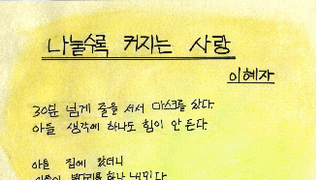 나눌수록 커지는 사랑
이혜자
30분 넘게 줄을 서서 마스크를 샀다
아들 생각에 하나도 힘이 안 든다
아들 집에 갔더니
하나 내민다